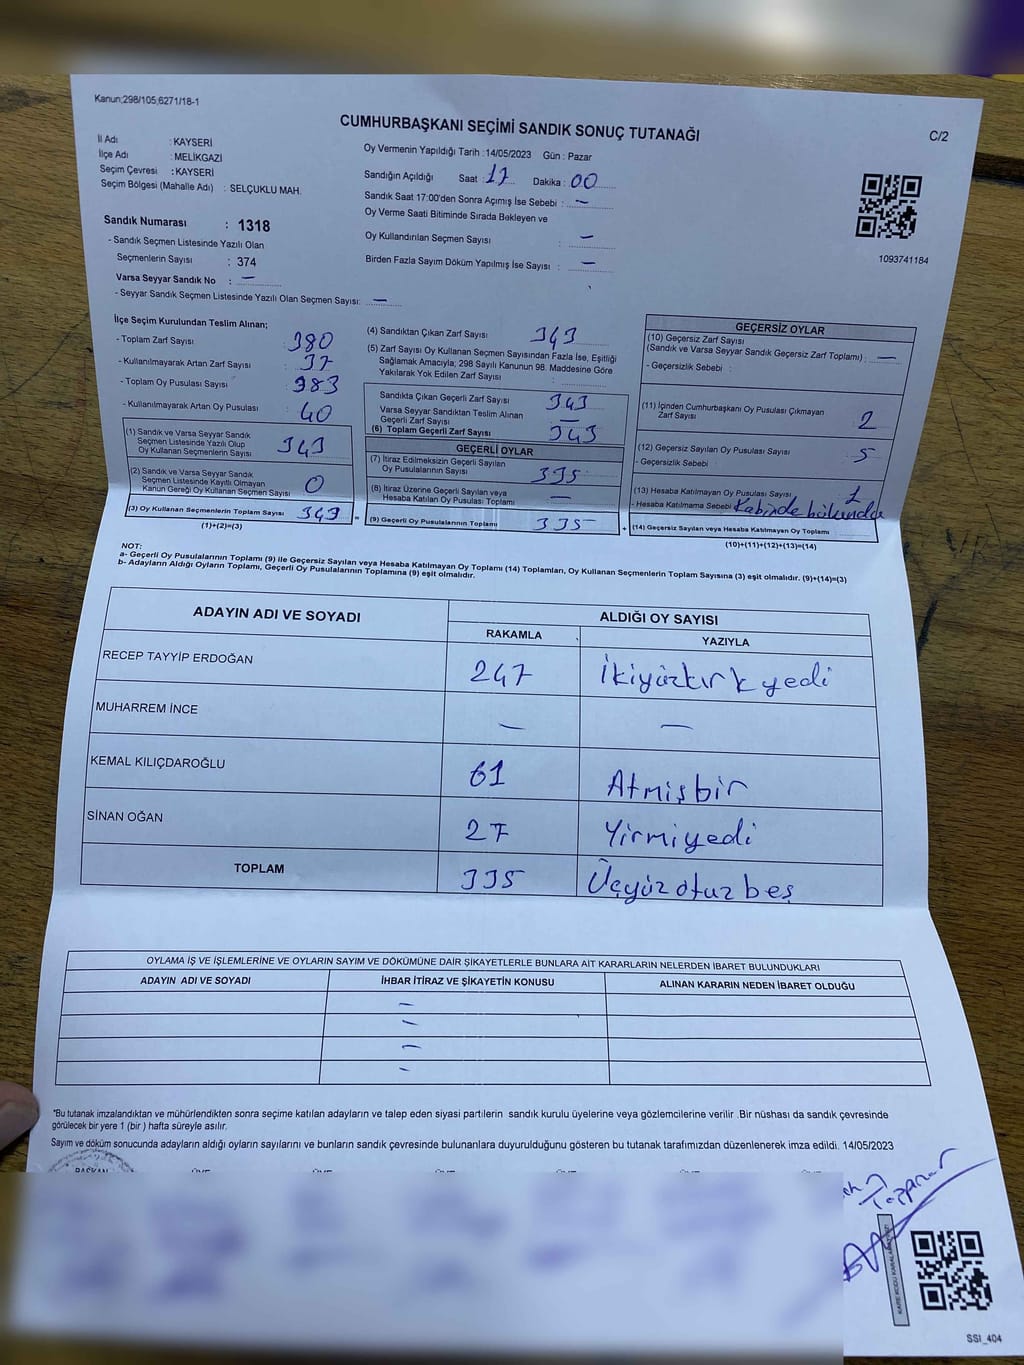 Kanun;298/105;6271/18-1
CUMHURBAŞKANI SEÇİMİ SANDIK SONUÇ TUTANAĞI
C/2
İl Adı : KAYSERİ
İlçe Adı : MELİKGAZİ
Seçim Çevresi : KAYSERİ
Seçim Bölgesi (Mahalle Adı) : SELÇUKLU MAH.
Oy Vermenin Yapıldığı Tarih :14/05/2023 Gün : Pazar
Sandığın Açıldığı Saat : 17 Dakika : 00
Sandık Saat 17:00'den Sonra Açımış İse Sebebi : –
Oy Verme Saati Bitiminde Sırada Bekleyen ve
Oy Kullandırılan Seçmen Sayısı : –
Birden Fazla Sayım Döküm Yapılmış İse Sayısı : –
1093741184
Sandık Numarası : 1318
- Sandık Seçmen Listesinde Yazılı Olan
Seçmenlerin Sayısı : 374
Varsa Seyyar Sandık No : –
- Seyyar Sandık Seçmen Listesinde Yazılı Olan Seçmen Sayısı: –
İlçe Seçim Kurulundan Teslim Alınan;
- Toplam Zarf Sayısı : 380
- Kullanılmayarak Artan Zarf Sayısı : 37
- Toplam Oy Pusulası Sayısı : 383
- Kullanılmayarak Artan Oy Pusulası : 40
(1) Sandık ve Varsa Seyyar Sandık
Seçmen Listesinde Yazılı Olup
Oy Kullanan Seçmen Sayısı : 343
(2) Sandık ve Varsa Seyyar Sandık
Seçmen Listesinde Kayıtlı Olmayan
Kanun Gereği Oy Kullanan Seçmen Sayısı : 0
(3) Oy Kullanan Seçmenlerin Toplam Sayısı : 343
(1)+(2)=(3)
(4) Sandıktan Çıkan Zarf Sayısı : 343
(5) Zarf Sayısı Oy Kullanan Seçmen Sayısından Fazla İse, Eşitliği
Sağlamak Amacıyla; 298 Sayılı Kanunun 98. Maddesine Göre
Yakılarak Yok Edilen Zarf Sayısı :
Sandıkta Çıkan Geçerli Zarf Sayısı : 343
Varsa Seyyar Sandıktan Teslim Alınan
Geçerli Zarf Sayısı : –
(6) Toplam Geçerli Zarf Sayısı : 343
GEÇERLİ OYLAR
(7) İtiraz Edilmeksizin Geçerli Sayılan
Oy Pusulalarının Sayısı : 335
(8) İtiraz Üzerine Geçerli Sayılan veya
Hesaba Katılan Oy Pusulası Toplamı : –
= (9) Geçerli Oy Pusulalarının Toplamı : 335 +
GEÇERSİZ OYLAR
(10) Geçersiz Zarf Sayısı
(Sandık ve Varsa Seyyar Sandık Geçersiz Zarf Toplamı) : –
- Geçersizlik Sebebi :
(11) İçinden Cumhurbaşkanı Oy Pusulası Çıkmayan
Zarf Sayısı : 2
(12) Geçersiz Sayılan Oy Pusulası Sayısı : 5
- Geçersizlik Sebebi :
(13) Hesaba Katılmayan Oy Pusulası Sayısı : 1
- Hesaba Katılmama Sebebi : Kabinde bulundu
(14) Geçersiz Sayılan veya Hesaba Katılmayan Oy Toplamı :
(10)+(11)+(12)+(13)=(14)
NOT:
a- Geçerli Oy Pusulalarının Toplamı (9) ile Geçersiz Sayılan veya Hesaba Katılmayan Oy Toplamı (14) Toplamları, Oy Kullanan Seçmenlerin Toplam Sayısına (3) eşit olmalıdır. (9)+(14)=(3)
b- Adayların Aldığı Oyların Toplamı, Geçerli Oy Pusulalarının Toplamına (9) eşit olmalıdır.
ADAYIN ADI VE SOYADI
ALDIĞI OY SAYISI
RAKAMLA
YAZIYLA
RECEP TAYYİP ERDOĞAN 247 İkiyüzkırkyedi
MUHARREM İNCE – –
KEMAL KILIÇDAROĞLU 61 Atmışbir
SİNAN OĞAN 27 Yirmiyedi
TOPLAM 335 Üçyüzotuzbeş
OYLAMA İŞ VE İŞLEMLERİNE VE OYLARIN SAYIM VE DÖKÜMÜNE DAİR ŞİKAYETLERLE BUNLARA AİT KARARLARIN NELERDEN İBARET BULUNDUKLARI
ADAYIN ADI VE SOYADI
İHBAR İTİRAZ VE ŞİKAYETİN KONUSU
ALINAN KARARIN NEDEN İBARET OLDUĞU
–
–
–
–
*Bu tutanak imzalandıktan ve mühürlendikten sonra seçime katılan adayların ve talep eden siyasi partilerin sandık kurulu üyelerine veya gözlemcilerine verilir .Bir nüshası da sandık çevresinde
görülecek bir yere 1 (bir ) hafta süreyle asılır.
Sayım ve döküm sonucunda adayların aldığı oyların sayılarını ve bunların sandık çevresinde bulunanlara duyurulduğunu gösteren bu tutanak tarafımızdan düzenlenerek imza edildi. 14/05/2023
BAŞKAN ÜYE ÜYE ÜYE ÜYE ÜYE ÜYE
SSI_404